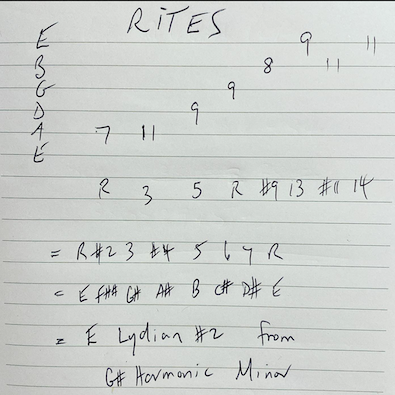 RITES
E 9 11
B 8 11
G 9
D 9
A 7 11
E
R 3 5 R #9 13 #11 14
= R #2 3 #4 5 6 7 R
= E F## G# A# B C# D# E
= E Lydian #2 from
G# Harmonic Minor